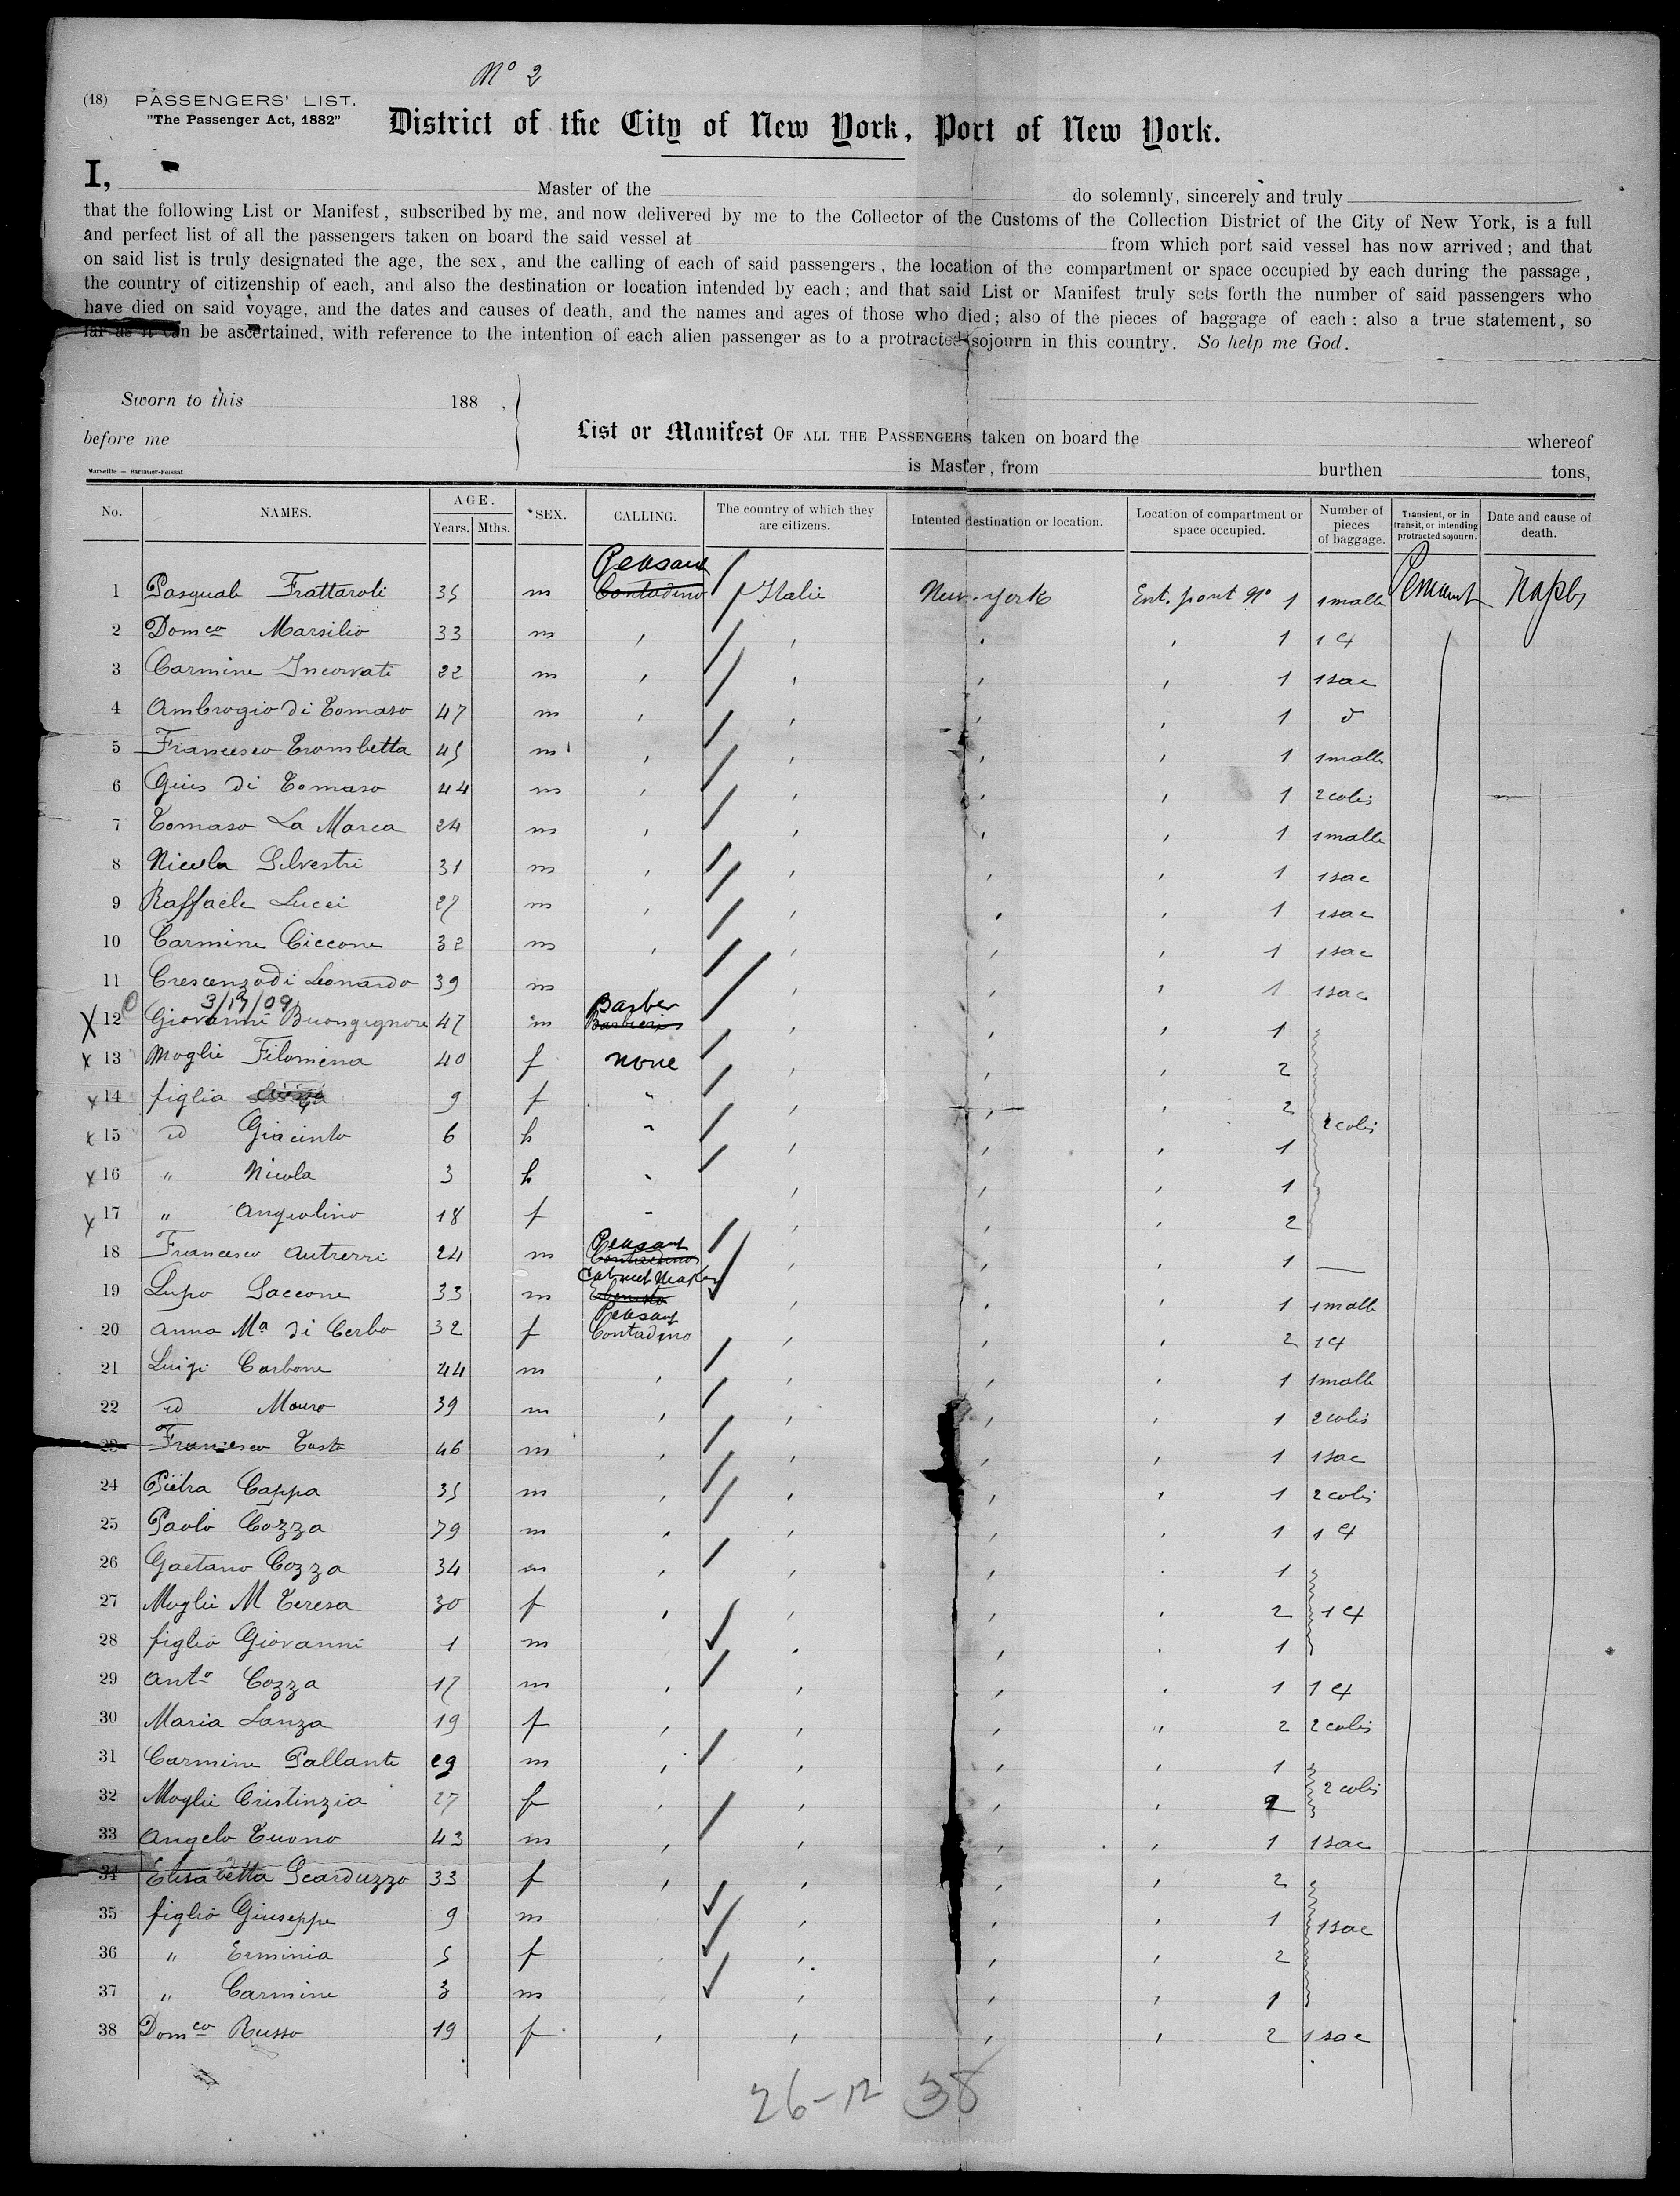 No 2
(18) PASSENGERS' LIST.
"The Passenger Act, 1882"
District of the City of New York, Port of New York.
I, Master of the do solemnly, sincerely and truly
that the following List or Manifest, subscribed by me, and now delivered by me to the Collector of the Customs of the Collection District of the City of New York, is a full
and perfect list of all the passengers taken on board the said vessel at from which port said vessel has now arrived; and that
on said list is truly designated the age, the sex, and the calling of each of said passengers, the location of the compartment or space occupied by each during the passage,
the country of citizenship of each, and also the destination or location intended by each; and that said List or Manifest truly sets forth the number of said passengers who
have died on said voyage, and the dates and causes of death, and the names and ages of those who died; also of the pieces of baggage of each: also a true statement, so
far as it can be ascertained, with reference to the intention of each alien passenger as to a protracted sojourn in this country. So help me God.
Sworn to this 188 .
before me
List or Manifest OF ALL THE PASSENGERS taken on board the whereof
is Master, from burthen tons,
No. NAMES. AGE. Years. Mths. *SEX. CALLING. The country of which they are citizens. Intented destination or location. Location of compartment or space occupied. Number of pieces of baggage. Transient, or in transit, or intending protracted sojourn. Date and cause of death.
Peasant
1 Pasquale Frattaroli 35 m Contadino Italie New-York Ent. pont No 1 1 malle Naples
2 Domco Marsilio 33 m , , , , 1 1 c4
3 Carmine Incorvati 22 m , , , , 1 1 sac
4 Ambrogio di Tomaso 47 m , , , , 1 d
5 Francesco Trombetta 45 m , , , , 1 1 malle
6 Gius di Tomaso 44 m , , , , 1 2 colis
7 Tomaso La Marca 24 m , , , , 1 1 malle
8 Nicola Silvestri 31 m , , , , 1 1 sac
9 Raffaele Lucci 27 m , , , , 1 1 sac
10 Carmine Ciccone 32 m , , , , 1 1 sac
11 Crescenzo di Leonardo 39 m , , , 1 1 sac
3/19/09 Barber
X 12 Giovanni Buongignore 47 m Barbieri , , , 1
x 13 Moglie Filomena 40 f none , , , 2
x 14 figlia 9 f " , , , 2 2 colis
x 15 id Giacinto 6 h " , , , 1
x 16 " Nicola 3 h " , , , 1
x 17 " Angiolino 18 f " , , , 2
Peasant
18 Francesco Autrerri 24 m Contadino , , , 1 —
Cabinet Maker
19 Lupo Saccone 33 m Ebenista , , , 1 1 malle
Peasant
20 Anna Ma di Cerbo 32 f Contadino , , , 2 1 c4
21 Luigi Carbone 44 m , , , , 1 1 malle
22 id Mauro 39 m , , , , 1 2 colis
23 Francesco Testa 46 m , , , , 1 1 sac
24 Pietra Cappa 35 m , , , , 1 2 colis
25 Paolo Cozza 79 m , , , , 1 1 c4
26 Gaetano Cozza 34 m , , , , 1
27 Moglie M Teresa 30 f , , , , 2 1 c4
28 figlio Giovanni 1 m , , , 1
29 Anto Cozza 17 m , , , , 1 1 c4
30 Maria Lanza 19 f , , , " 2 2 colis
31 Carmine Pallante 29 m , , , , 1
32 Moglie Cristinzia 27 f , , , , 2 2 colis
33 Angelo Tuono 43 m , , , , 1 1 sac
34 Elisabetta Scarduzzo 33 f , , , , 2
35 figlio Giuseppe 9 m , , , 1 1 sac
36 " Erminia 5 f , , , , 2
37 " Carmine 3 m , , , , 1
38 Domco Russo 19 f , , , , 2 1 sac
26-12 38